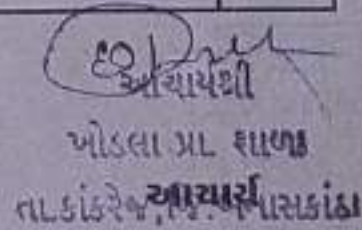 આચાર્યશ્રી
ખોડલા પ્રા. શાળા
તા.કાંકરેજ, આચાર્ય જિ. બનાસકાંઠા